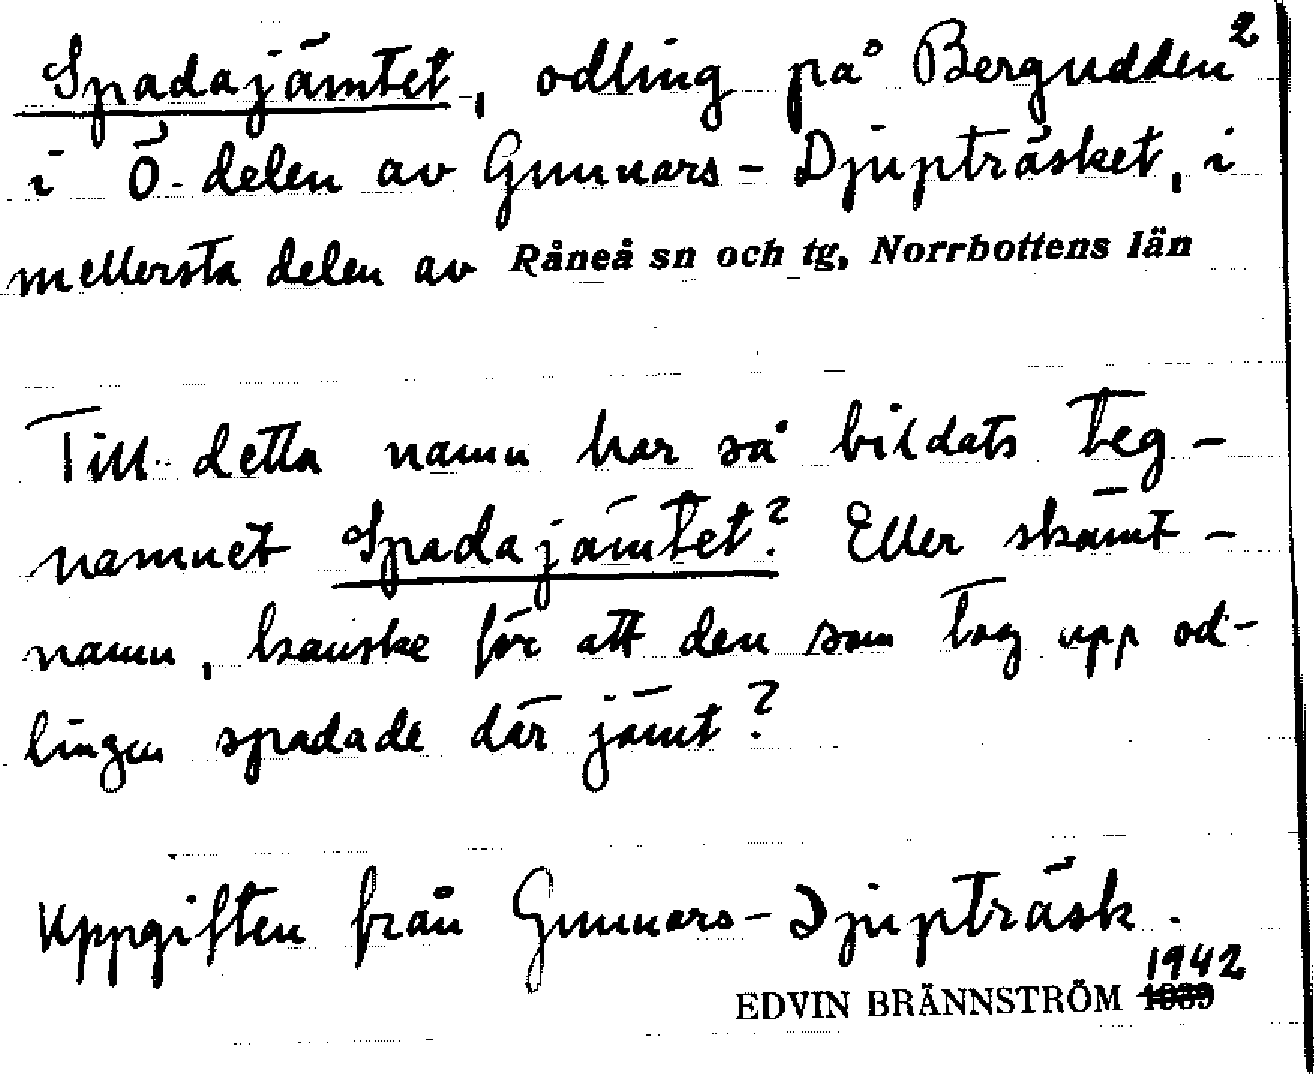 Spadajämtet, odling på Bergudden 2
i Ö. delen av Gunnars-Djupträsket, i
mellersta delen av Råneå sn och tg, Norrbottens län
Till detta namn har så bildats teg-
namnet Spadajämtet? Eller skämt-
namn, kanske för att den som tog upp od-
lingen spadade där jämt?
Uppgiften från Gunnars-Djupträsk.
1942
EDVIN BRÄNNSTRÖM 1939